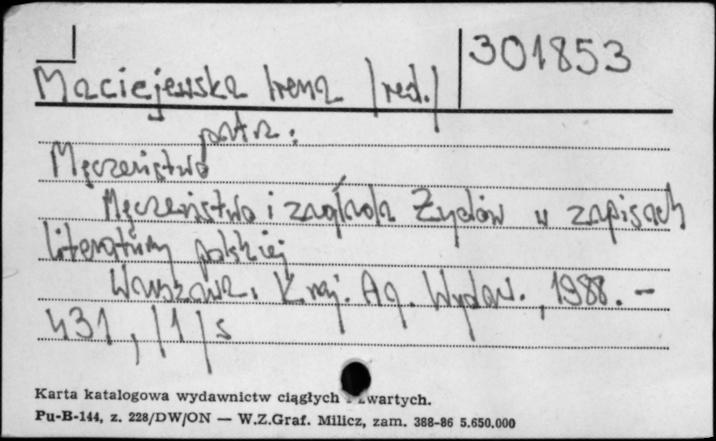 301853
Maciejewska Irena /red./
patrz:
Męczeństwo
Męczeństwo i zagłada Żydów w zapisach
literatury polskiej
Warszawa, Kraj. Ag. Wydaw., 1988. –
431, /1/ s
Karta katalogowa wydawnictw ciągłych i zwartych.
Pu-B-144, z. 228/DW/ON — W.Z.Graf. Milicz, zam. 388-86 5.650.000